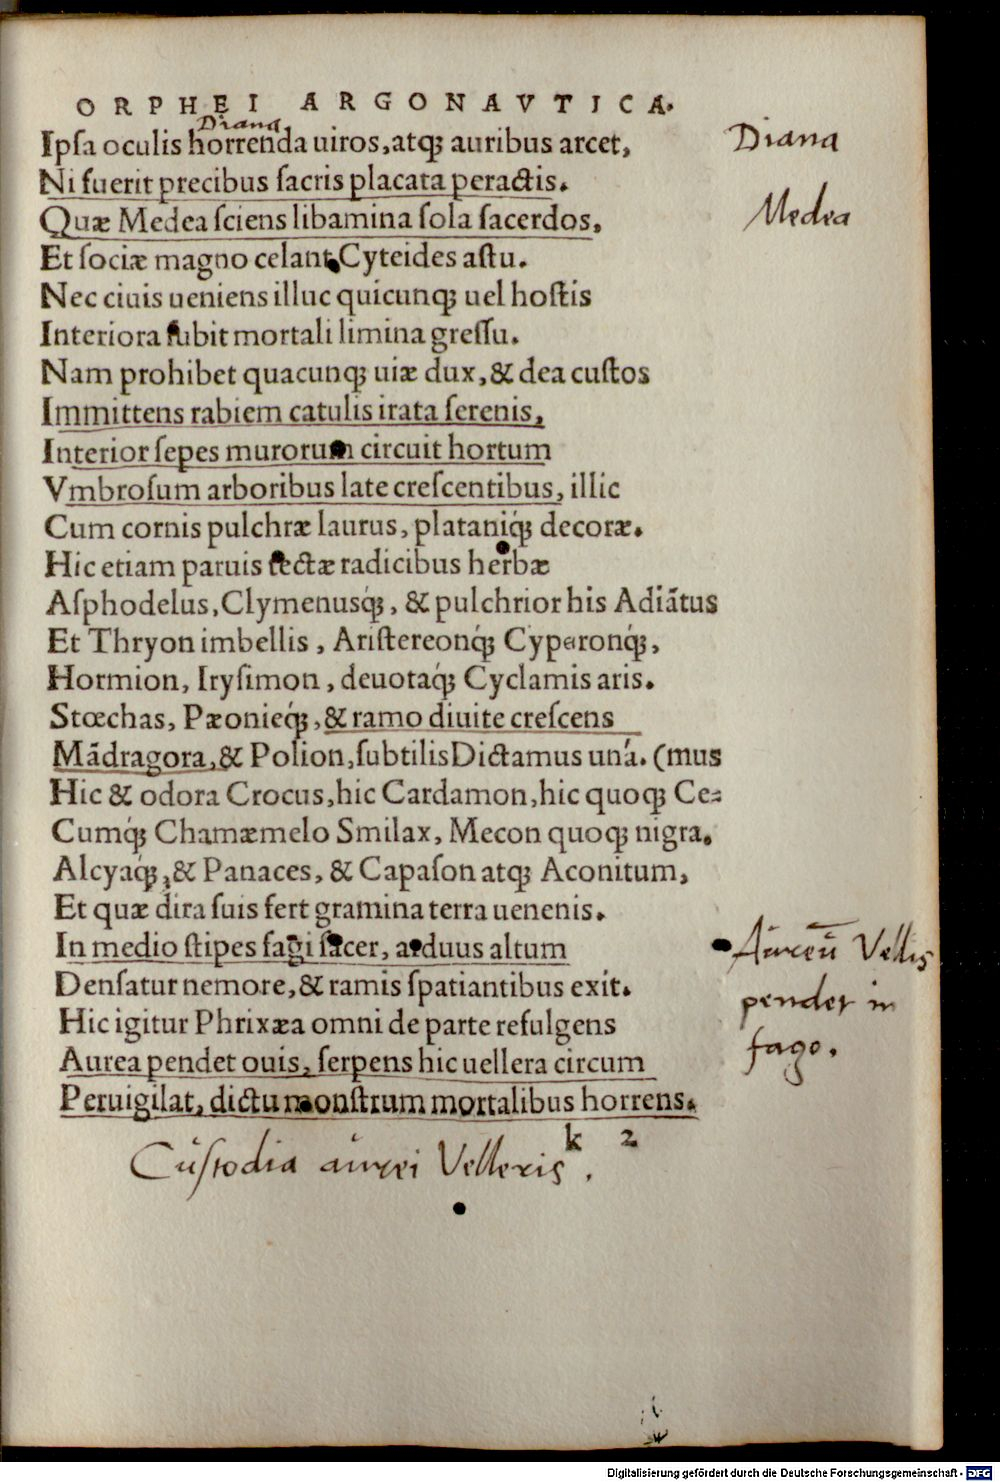 ORPHEI ARGONAVTICA.
Diana
Ipſa oculis horrenda uiros, atq; auribus arcet,
Diana
Ni fuerit precibus ſacris placata peractis.
Quæ Medea ſciens libamina ſola ſacerdos,
Medea
Et ſociæ magno celant Cyteides aſtu.
Nec ciuis ueniens illuc quicunq; uel hoſtis
Interiora ſubit mortali limina greſſu.
Nam prohibet quacunq; uiæ dux, & dea cuſtos
Immittens rabiem catulis irata ferenis,
Interior ſepes murorum circuit hortum
Vmbroſum arboribus late creſcentibus, illic
Cum cornis pulchræ laurus, plataniq́; decoræ.
Hic etiam paruis tectæ radicibus herbæ
Aſphodelus, Clymenusq́;, & pulchrior his Adiātus
Et Thryon imbellis, Ariſtereonq́; Cyperonq́;,
Hormion, Iryſimon, deuotaq́; Cyclamis aris.
Stœchas, Pæonieq́;, & ramo diuite creſcens
Mādragora, & Polion, ſubtilis Dictamus unà. (mus
Hic & odora Crocus, hic Cardamon, hic quoq; Ce-
Cumq́; Chamæmelo Smilax, Mecon quoq; nigra.
Alcyaq́;, & Panaces, & Capaſon atq; Aconitum,
Et quæ dira ſuis fert gramina terra uenenis.
In medio ſtipes fagi ſacer, arduus altum
Aureū Vellis
Denſatur nemore, & ramis ſpatiantibus exit.
pendet in
Hic igitur Phrixæa omni de parte refulgens
fago.
Aurea pendet ouis, ſerpens hic uellera circum
Peruigilat, dictu monſtrum mortalibus horrens.
k 2
Cuſtodia aurei Velleris.
Digitalisierung gefördert durch die Deutsche Forschungsgemeinschaft - DFG